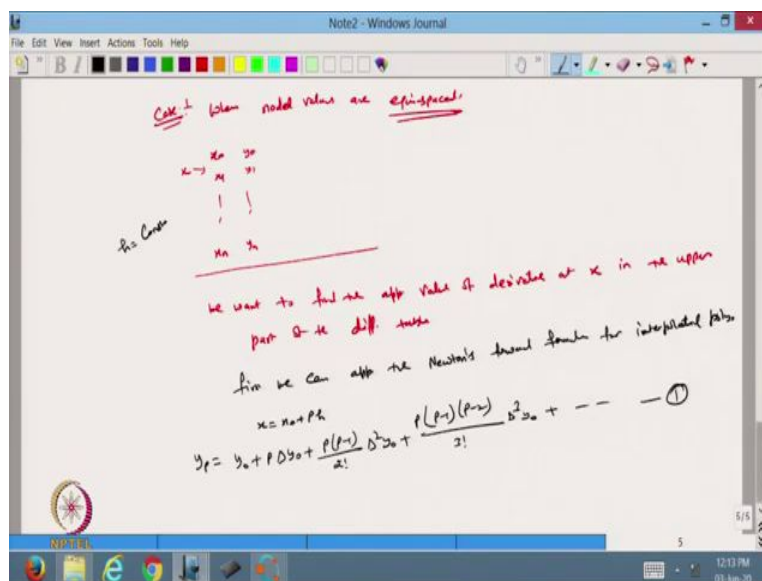 Note2 - Windows Journal
File Edit View Insert Actions Tools Help
B I
Case 1 When nodel values are equi-spaced.
x0 y0
x → x1 y1
h = Const
xn yn
we want to find the app value of derivative at x in the upper
part of the diff. table
first we can app the Newton's forward formula for interpolated poly.
x = x0 + Ph
yp = y0 + P Δy0 + P(P-1)/2! Δ²y0 + P(P-1)(P-2)/3! Δ²y0 + -- -- — ①
NPTEL
5/5
5
12:13 PM
03-Jun-20